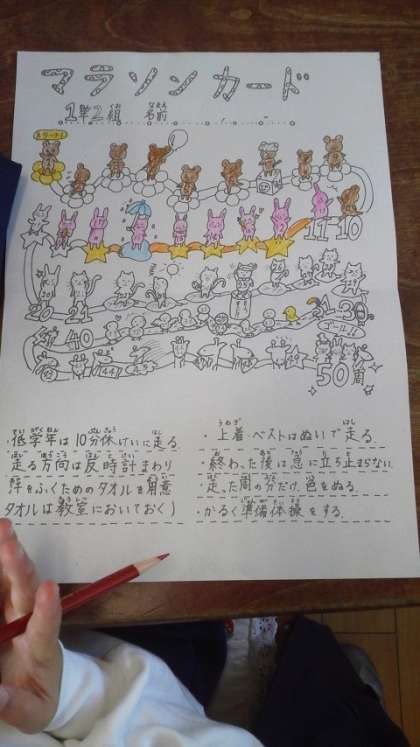 マラソンカード
1年2組 名前
スタート!
11 10
20 21 31 30
ゴール!!
40
50周
・低学年は10分休けいに走る
・走る方向は反時計まわり
汗をふくためのタオルを用意
タオルは教室においておく)
・上着・ベストはぬいで走る
・終わった後は急に立ち止まらない
・走った周の分だけ、色をぬる
・かるく準備体操をする。